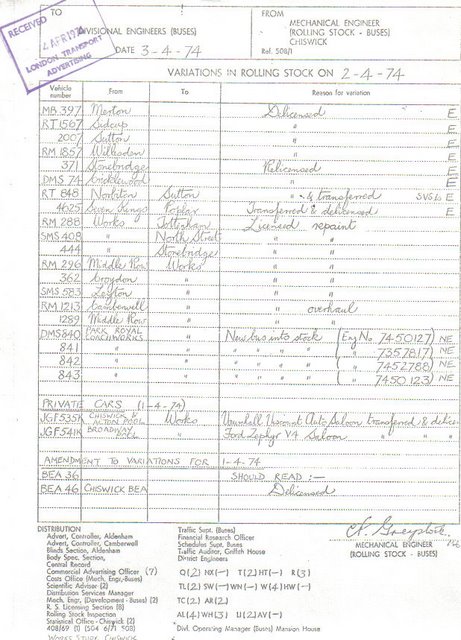 TO
DIVISIONAL ENGINEERS (BUSES)
DATE 3-4-74
RECEIVED
2 APR 1974
LONDON TRANSPORT
ADVERTISING
FROM
MECHANICAL ENGINEER
(ROLLING STOCK - BUSES)
CHISWICK
Ref. 508/1
VARIATIONS IN ROLLING STOCK ON 2-4-74
Vehicle number From To Reason for variation
MB 397 Merton Delicensed E
RT 1567 Sidcup " E
2007 Sutton " E
RM 1857 Willesden " E
371 Stonebridge Relicensed E
DMS 74 Cricklewood " E
RT 848 Norbiton Sutton " & transferred SVS to E
4625 Seven Kings Poplar Transferred & delicensed E
RM 288 Works Tottenham Licensed repaint
SMS 408 " North Street " "
444 " Stonebridge " "
RM 296 Middle Row Works " "
362 Croydon " " "
SMS 583 Leyton " " "
RM 1213 Camberwell " " overhaul
1289 Middle Row " " "
DMS 840 PARK ROYAL COACHWORKS " New bus into stock (Eng No 7450127) NE
841 " " " " " " ( " " 7357817) NE
842 " " " " " " ( " " 7452788) NE
843 " " " " " " ( " " 7450123) NE
PRIVATE CARS (1-4-74)
JGF 535K CHISWICK & ACTON POOL Works Vauxhall Viscount Auto Saloon transferred & delice-
JGF 541K BROADWAY " Ford Zephyr V4 Saloon " "
AMENDMENT TO VARIATIONS FOR 1-4-74
BEA 36 SHOULD READ :-
BEA 46 CHISWICK BEA Delicensed
MECHANICAL ENGINEER
(ROLLING STOCK - BUSES)
DISTRIBUTION
Advert, Controller, Aldenham
Advert, Controller, Camberwell
Blinds Section, Aldenham
Body Spec, Section,
Central Record
Commercial Advertising Officer (7)
Costs Office (Mech. Engr,-Buses)
Scientific Adviser (2)
Distribution Services Manager
Mech, Engr, (Development - Buses) (2)
R. S. Licensing Section (8)
Rolling Stock Inspection
Statistical Office - Chiswick (2)
408/69 (1) (504 6/71 508)
WORKS STUDY CHISWICK
Traffic Supt. (Buses)
Financial Research Officer
Schedules Supt. Buses
Traffic Auditor, Griffith House
District Engineers
Q(2) NX(-) T(2) HT(-) R(3)
TL(2) SW(-) WN(-) W(4) HW(-)
TC(2) AR(2)
AL(4) WH(3) U(2) AV(-)
Divl. Operating Manager (Buses) Mansion House